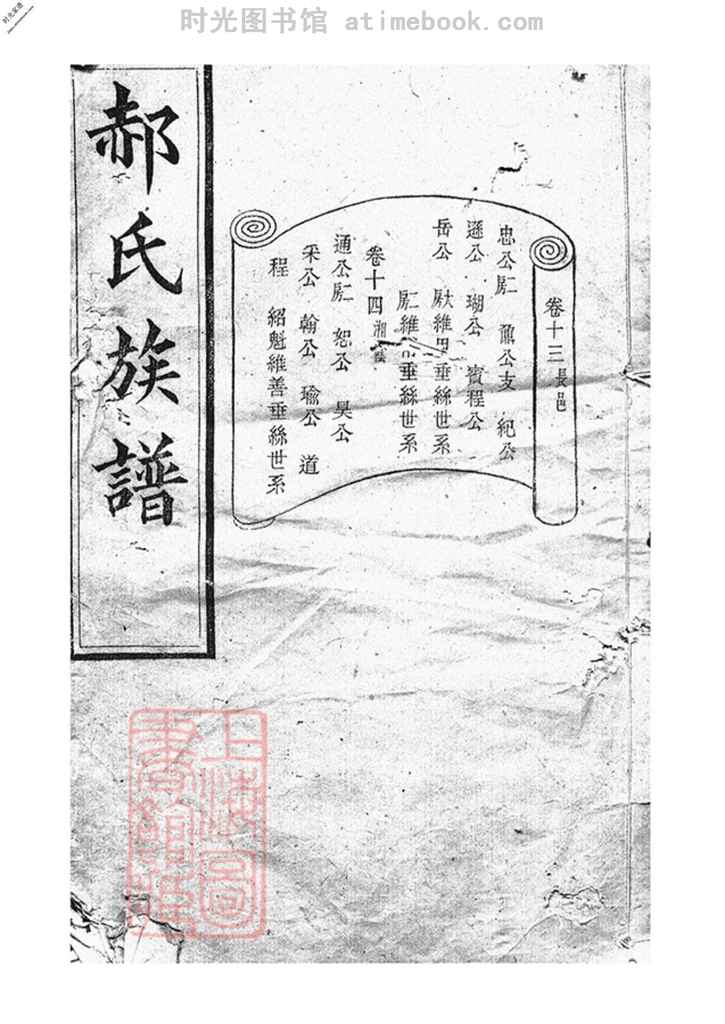 时光图书馆 atimebook.com
郝氏族譜
卷十三 長邑
忠公房 鼐公支 紀公
遜公 瑚公 賓程公
岳公 房大維 垂絲世系
房二維 垂絲世系
卷十四 湘
通公房 恕公 昊公
采公 翰公 瑜公 道
程 紹魁維善垂絲世系
上海圖書館藏